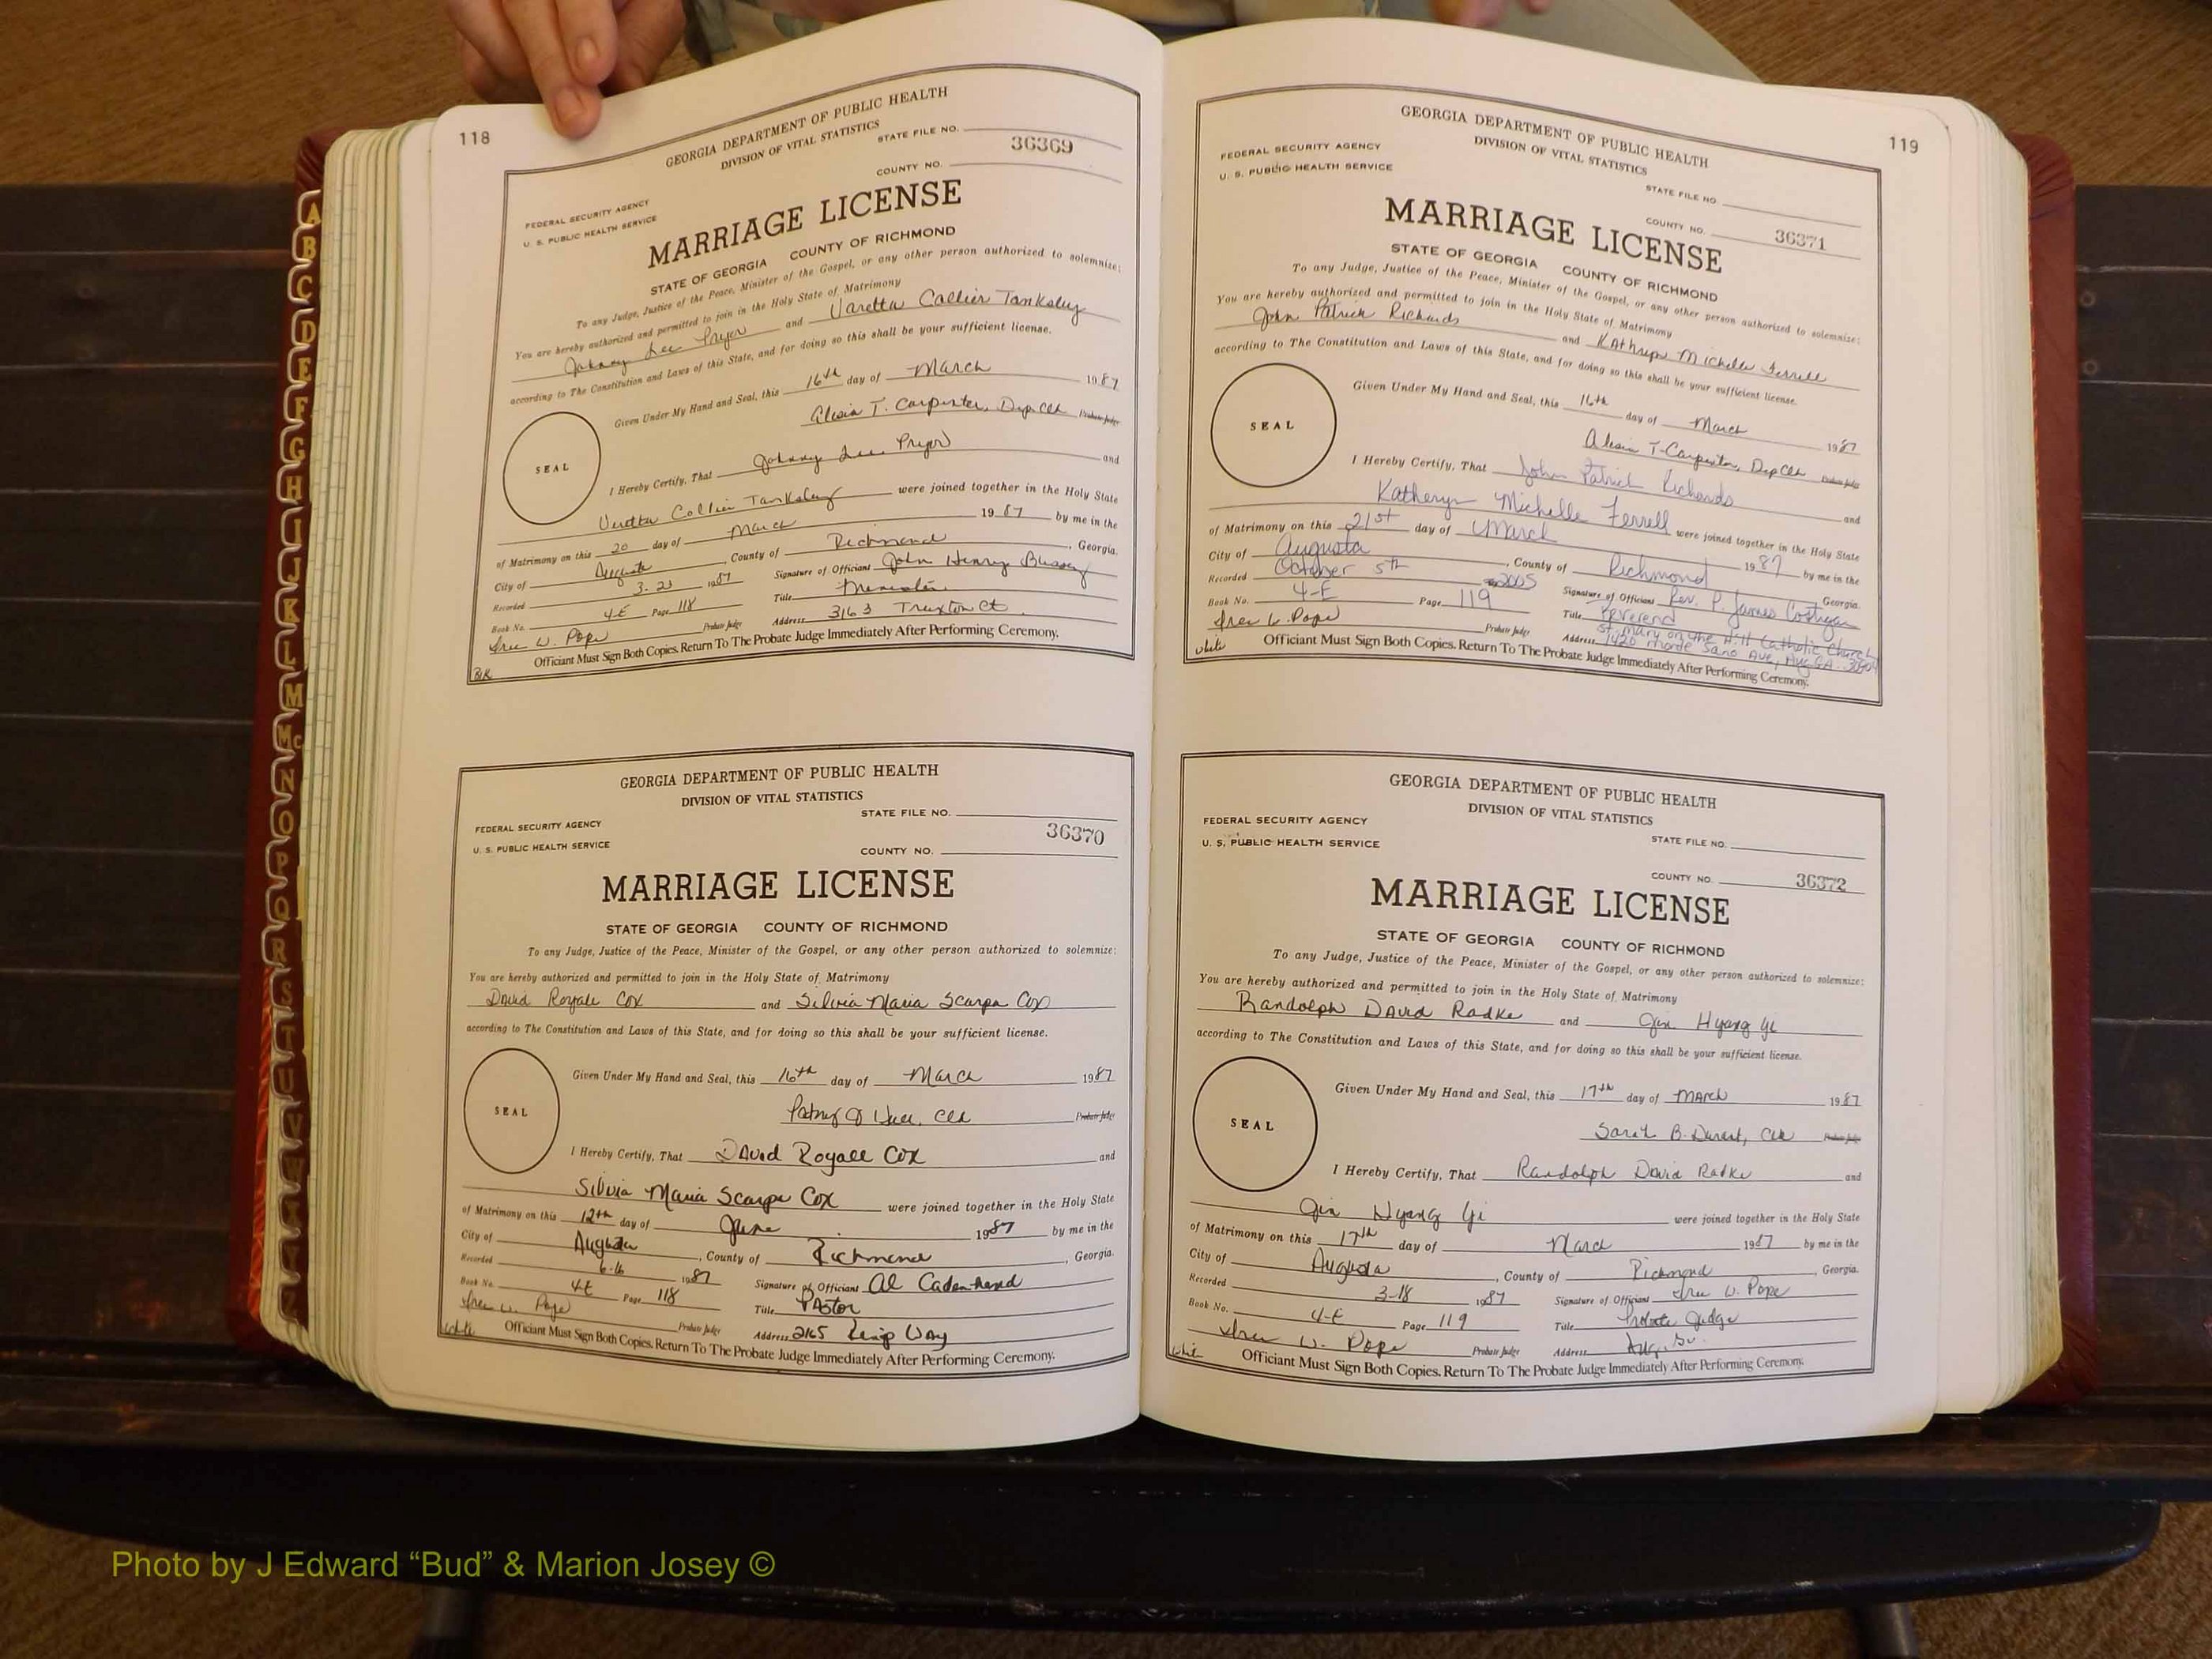 118
GEORGIA DEPARTMENT OF PUBLIC HEALTH
DIVISION OF VITAL STATISTICS
STATE FILE NO.
36369
COUNTY NO.
FEDERAL SECURITY AGENCY
U. S. PUBLIC HEALTH SERVICE
MARRIAGE LICENSE
STATE OF GEORGIA COUNTY OF RICHMOND
To any Judge, Justice of the Peace, Minister of the Gospel, or any other person authorized to solemnize:
You are hereby authorized and permitted to join in the Holy State of Matrimony
Johnny Lee Pryor and Varetta Collier Tanksley
according to The Constitution and Laws of this State, and for doing so this shall be your sufficient license.
Given Under My Hand and Seal, this 16th day of March 1987
Alesia T. Carpenter, Dep Clk Probate Judge
SEAL
I Hereby Certify, That Johnny Lee Pryor and
Veretta Collier Tanksley were joined together in the Holy State
of Matrimony on this 20 day of March 1987 by me in the
City of Augusta, County of Richmond, Georgia.
Recorded 3-23 1987 Signature of Officiant John Henry Bussey
Book No. 4-E Page 118 Title
Address 3163 Truxton Ct.
W. Pope Probate Judge
Officiant Must Sign Both Copies. Return To The Probate Judge Immediately After Performing Ceremony.
BLK
GEORGIA DEPARTMENT OF PUBLIC HEALTH
DIVISION OF VITAL STATISTICS
STATE FILE NO.
36370
FEDERAL SECURITY AGENCY
U. S. PUBLIC HEALTH SERVICE
COUNTY NO.
MARRIAGE LICENSE
STATE OF GEORGIA COUNTY OF RICHMOND
To any Judge, Justice of the Peace, Minister of the Gospel, or any other person authorized to solemnize:
You are hereby authorized and permitted to join in the Holy State of Matrimony
David Royall Cox and Silvia Maria Scarpa Cox
according to The Constitution and Laws of this State, and for doing so this shall be your sufficient license.
Given Under My Hand and Seal, this 16th day of March 1987
Clk Probate Judge
SEAL
I Hereby Certify, That David Royall Cox and
Silvia Maria Scarpa Cox were joined together in the Holy State
of Matrimony on this 12th day of June 1987 by me in the
City of Augusta, County of Richmond, Georgia.
Recorded 6-16 1987 Signature of Officiant Al Cadenhead
Book No. 4E Page 118 Title Pastor
W. Pope Probate Judge Address 2165 Kings Way
white Officiant Must Sign Both Copies. Return To The Probate Judge Immediately After Performing Ceremony.
119
GEORGIA DEPARTMENT OF PUBLIC HEALTH
DIVISION OF VITAL STATISTICS
FEDERAL SECURITY AGENCY
U. S. PUBLIC HEALTH SERVICE
STATE FILE NO.
COUNTY NO. 36371
MARRIAGE LICENSE
STATE OF GEORGIA COUNTY OF RICHMOND
To any Judge, Justice of the Peace, Minister of the Gospel, or any other person authorized to solemnize:
You are hereby authorized and permitted to join in the Holy State of Matrimony
John Patrick Richards and Kathryn Michelle Ferrell
according to The Constitution and Laws of this State, and for doing so this shall be your sufficient license.
Given Under My Hand and Seal, this 16th day of March 1987
Alesia T. Carpenter, Dep Clk Probate Judge
SEAL
I Hereby Certify, That John Patrick Richards and
Katheryn Michelle Ferrell were joined together in the Holy State
of Matrimony on this 21st day of March 1987 by me in the
City of Augusta, County of Richmond Georgia.
Recorded October 5th 2005 Signature of Officiant Rev. P. James Costigan
Book No. 4-E Page 119 Title Reverend
W. Pope Probate Judge Address St. Mary on the Hill Catholic Church
1420 Monte Sano Ave, Aug GA. 30904
white Officiant Must Sign Both Copies. Return To The Probate Judge Immediately After Performing Ceremony.
GEORGIA DEPARTMENT OF PUBLIC HEALTH
DIVISION OF VITAL STATISTICS
FEDERAL SECURITY AGENCY
U. S. PUBLIC HEALTH SERVICE
STATE FILE NO.
COUNTY NO. 36372
MARRIAGE LICENSE
STATE OF GEORGIA COUNTY OF RICHMOND
To any Judge, Justice of the Peace, Minister of the Gospel, or any other person authorized to solemnize:
You are hereby authorized and permitted to join in the Holy State of Matrimony
Randolph David Radke and Gin Hyang Yi
according to The Constitution and Laws of this State, and for doing so this shall be your sufficient license.
Given Under My Hand and Seal, this 17th day of March 1987
Sarah B. Durant, Clk Probate Judge
SEAL
I Hereby Certify, That Randolph David Radke and
Gin Hyang Yi were joined together in the Holy State
of Matrimony on this 17th day of March 1987 by me in the
City of Augusta, County of Richmond, Georgia.
Recorded 3-18 1987 Signature of Officiant W. Pope
Book No. 4-E Page 119 Title Probate Judge
W. Pope Probate Judge Address Aug, Ga.
white Officiant Must Sign Both Copies. Return To The Probate Judge Immediately After Performing Ceremony.
A
B
C
D
E
F
G
H
I
J
K
L
M
Mc
N
O
P
Q
R
S
T
U
V
W
Photo by J Edward “Bud” & Marion Josey ©